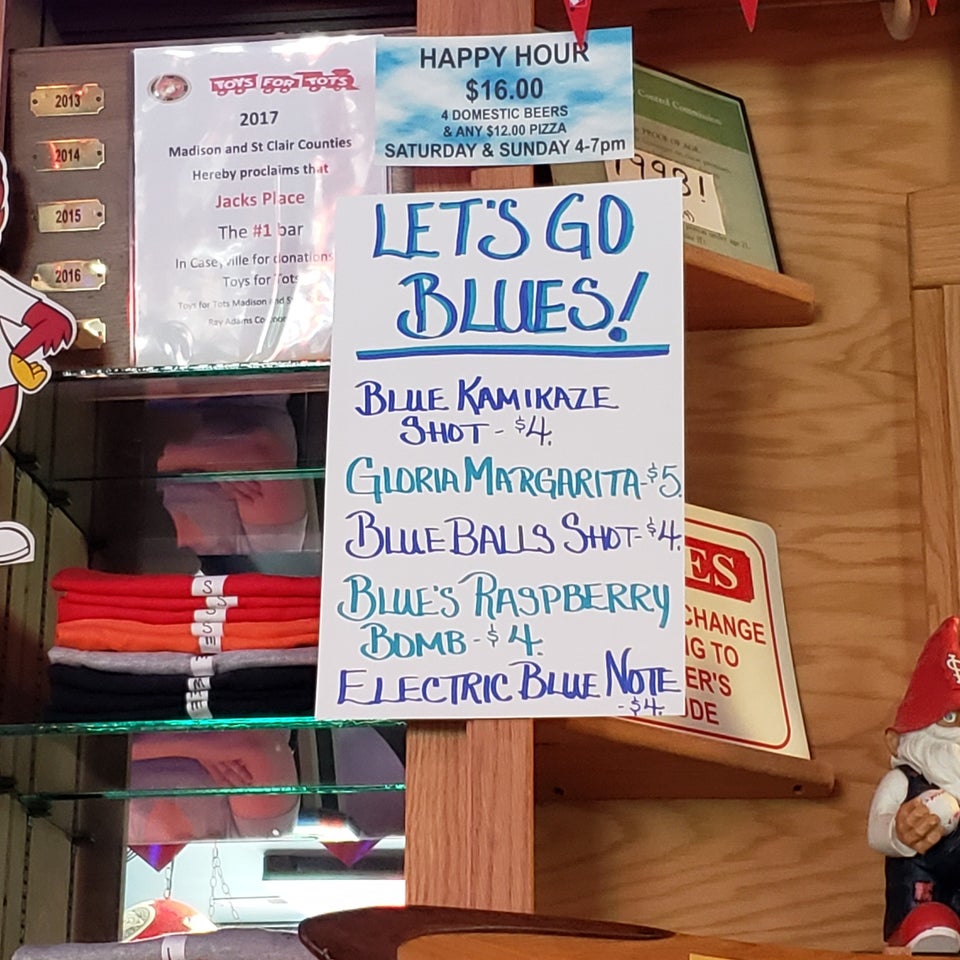 2013
2014
2015
2016
TOYS FOR TOTS
2017
Madison and St Clair Counties
Hereby proclaims that
Jacks Place
The #1 bar
In Caseyville for donations
Toys for Tots
Toys for Tots Madison and
Ray Adams
HAPPY HOUR
$16.00
4 DOMESTIC BEERS
& ANY $12.00 PIZZA
SATURDAY & SUNDAY 4-7pm
Control Commission
PROOF OF AGE
1998!
LET'S GO
BLUES!
BLUE KAMIKAZE
SHOT - $4.
GLORIA MARGARITA - $5.
BLUE BALLS SHOT - $4.
BLUE'S RASPBERRY
BOMB - $4.
ELECTRIC BLUE NOTE
- $4.
ES
CHANGE
G TO
ER'S
DE
S
S
S
S